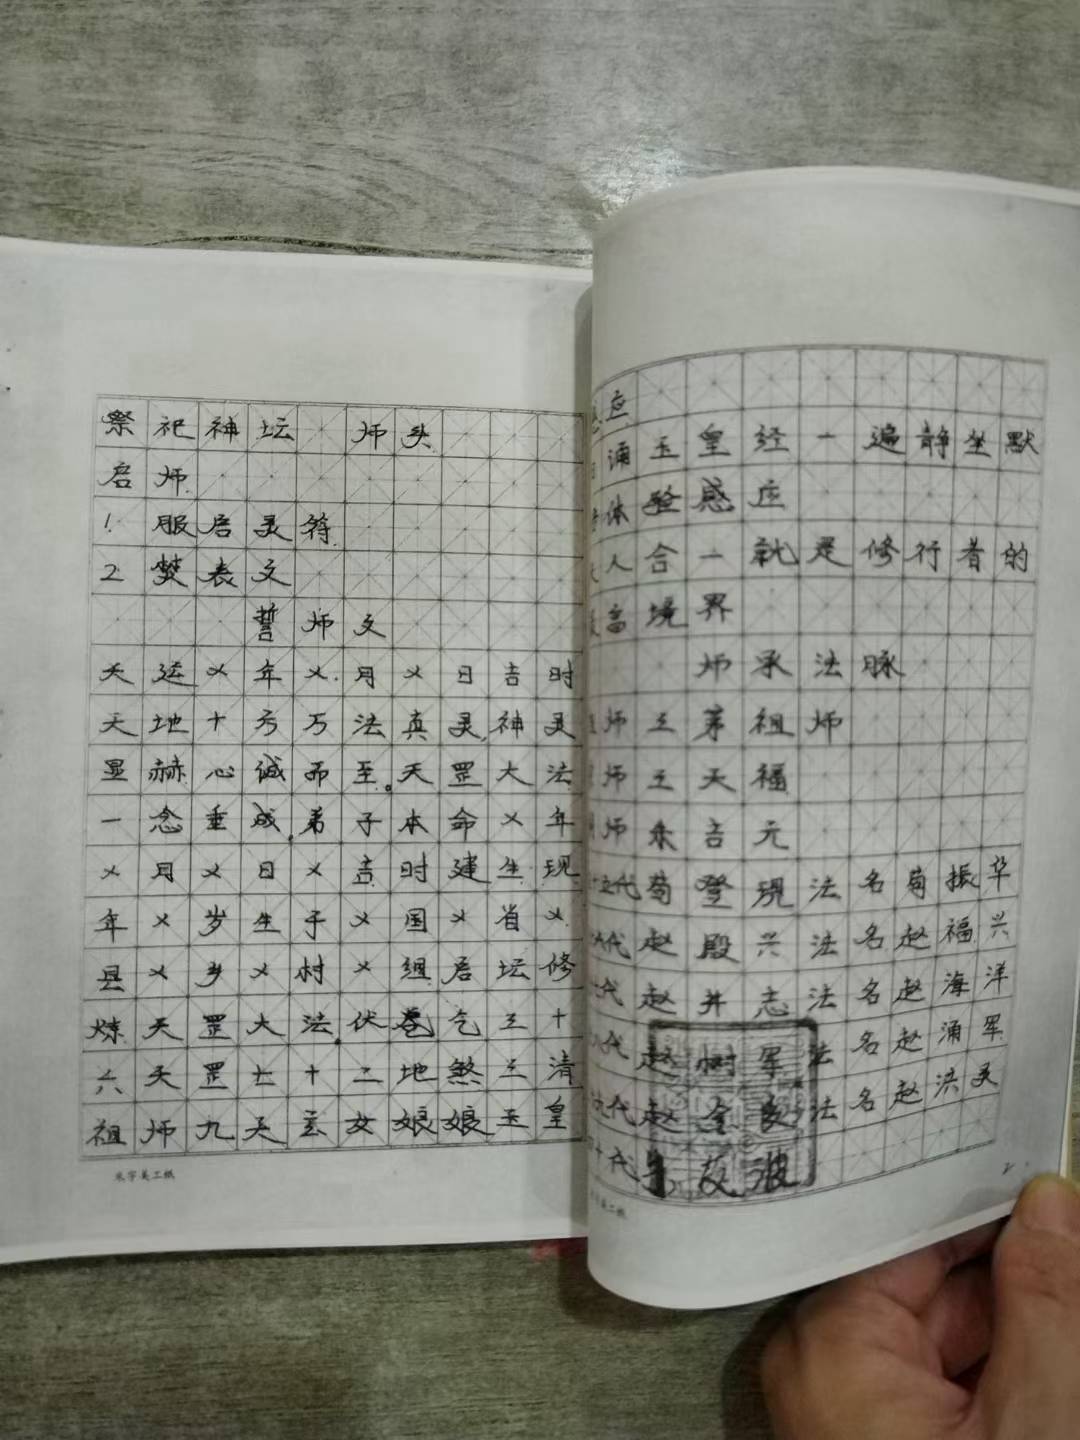 祭祀神坛 师头
启师
1. 服启灵符
2 焚表文
誓师文
天运㐅年㐅.月㐅日吉时
天地十方万法真灵,神灵
显赫心诚而至。天罡大法
一念重成,弟子本命㐅年
㐅月㐅日㐅吉时建生现
年㐅岁生于㐅国㐅省㐅
县㐅乡㐅村㐅组启坛修
炼天罡大法。伏 气三十
六天罡七十二地煞三清
祖师九天玄女娘娘玉皇
米字美工纸
应
诵玉皇经一遍静坐默
体验感应
人合一就是修行者的
高境界
师承法脉
师王茅祖师
师王天福
师朱吉元
十五代荀登现法名荀振华
六代赵殿兴法名赵福兴
代赵井志法名赵海洋
代赵树军法名赵涌军
代赵金良法名赵洪天
十代 波
2